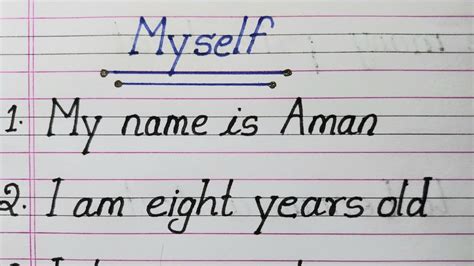 Myself
1. My name is Aman
2. I am eight years old